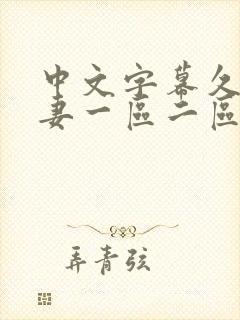 中文字幕久
妻一區二區
弄青弦